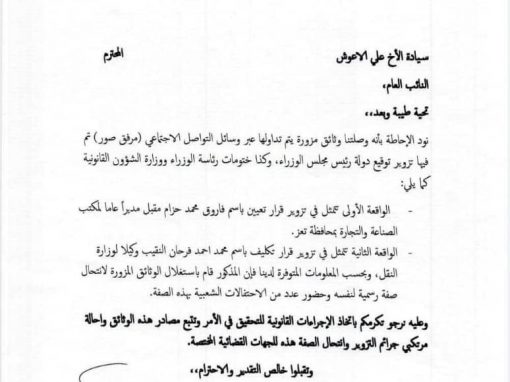 سيادة الأخ علي الاعوش المحترم
النائب العام،
تحية طيبة وبعد،،
نود الإحاطة بأنه وصلتنا وثائق مزورة يتم تداولها عبر وسائل التواصل الاجتماعي (مرفق صور) تم
فيها تزوير توقيع دولة رئيس مجلس الوزراء، وكذا ختومات رئاسة الوزراء ووزارة الشؤون القانونية
كما يلي:
- الواقعة الأولى تتمثل في تزوير قرار تعيين باسم فاروق محمد حزام مقبل مديراً عاما لمكتب
الصناعة والتجارة بمحافظة تعز.
- الواقعة الثانية تتمثل في تزوير قرار تكليف باسم محمد احمد فرحان النقيب وكيلا لوزارة
النقل، وبحسب المعلومات المتوفرة لدينا فإن المذكور قام باستغلال الوثائق المزورة لانتحال
صفة رسمية لنفسه وحضور عدد من الاحتفالات الشعبية بهذه الصفة.
وعليه نرجو تكرمكم باتخاذ الإجراءات القانونية للتحقيق في الأمر وتتبع مصادر هذه الوثائق واحالة
مرتكبي جرائم التزوير وانتحال الصفة هذه للجهات القضائية المختصة.
وتقبلوا خالص التقدير والاحترام،،